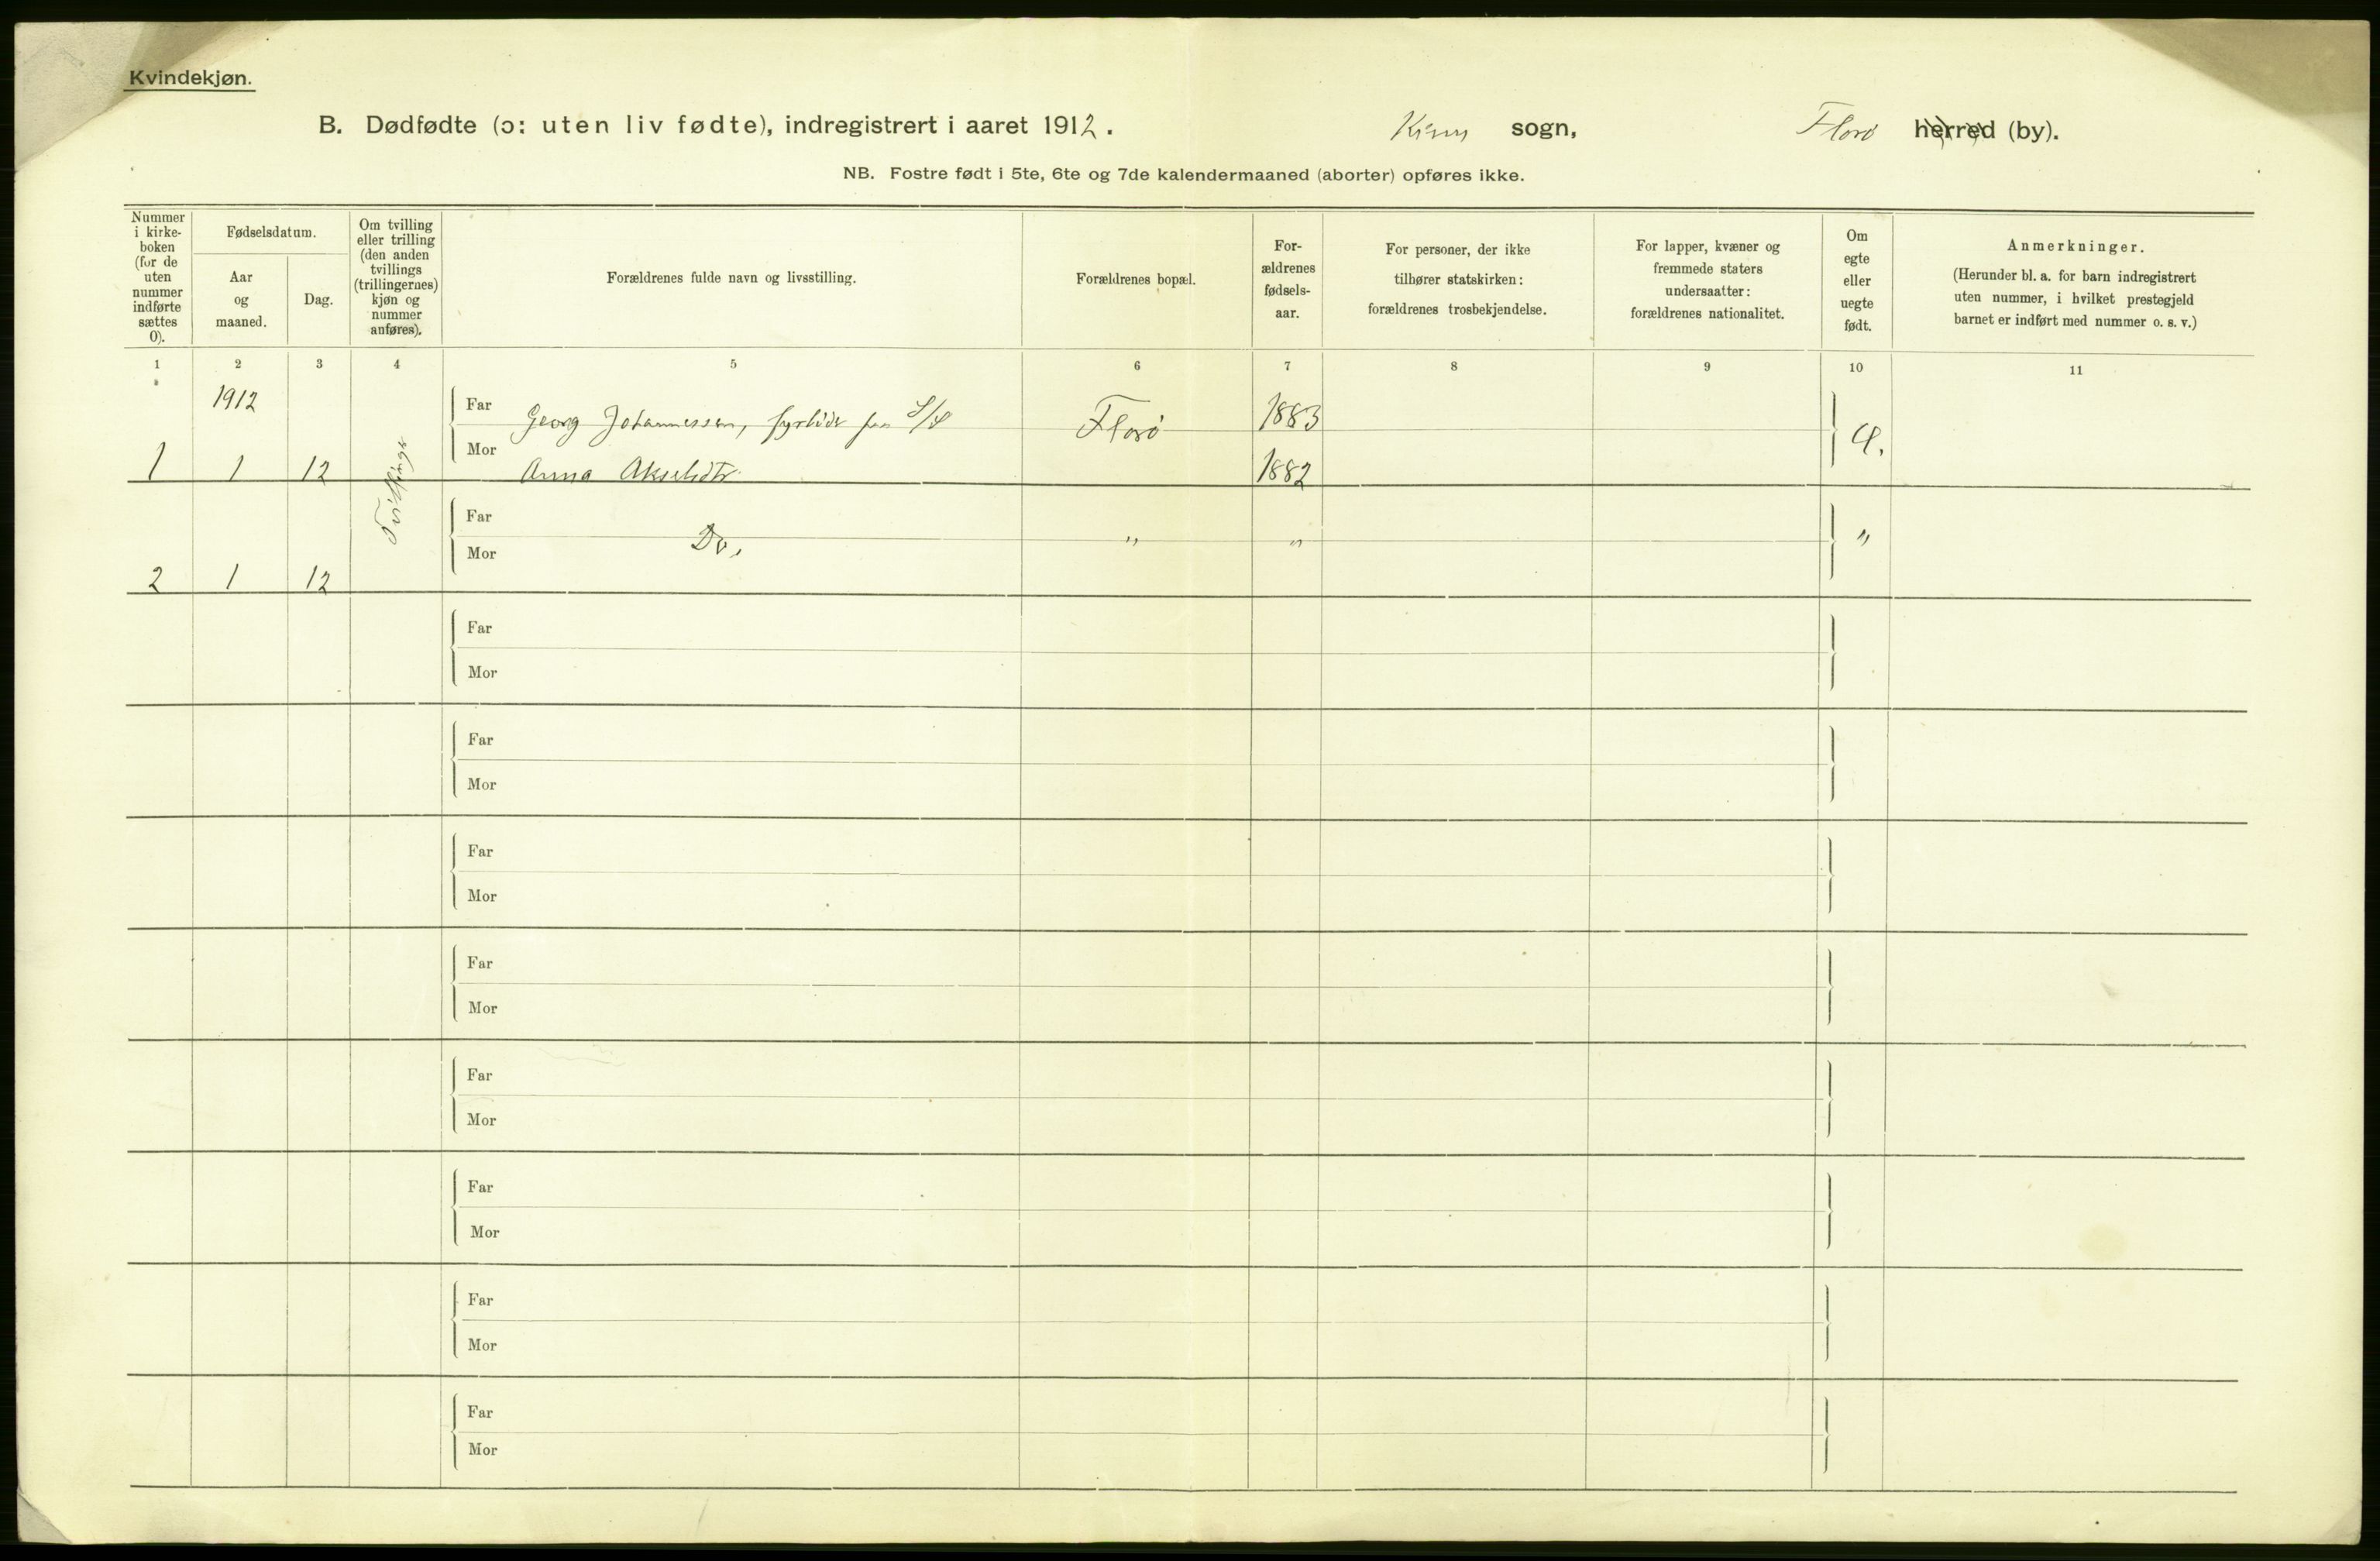 Kvindekjøn.
B. Dødfødte (ɔ: uten liv fødte), indregistrert i aaret 1912. Kinn sogn, Florø herred (by).
NB. Fostre født i 5te, 6te og 7de kalendermaaned (aborter) opføres ikke.
Nummer i kirke-boken (for de uten nummer indførte sættes 0).
Fødselsdatum.
Aar og maaned.
Dag.
Om tvilling eller trilling (den anden tvillings (trillingernes) kjøn og nummer anføres).
Forældrenes fulde navn og livsstilling.
Forældrenes bopæl.
For-ældrenes fødsels-aar.
For personer, der ikke tilhører statskirken: forældrenes trosbekjendelse.
For lapper, kvæner og fremmede staters undersaatter: forældrenes nationalitet.
Om egte eller uegte født.
Anmerkninger.
(Herunder bl. a. for barn indregistrert uten nummer, i hvilket prestegjeld barnet er indført med nummer o. s. v.)
1 2 3 4 5 6 7 8 9 10 11
1912
Far Georg Johannessen, fyrbøder paa S/S Florø 1883
1 1 12 Tvillinger Mor Anna Akselsdtr. 1882
Far
2 1 12 Mor Do. " " "
Far
Mor
Far
Mor
Far
Mor
Far
Mor
Far
Mor
Far
Mor
Far
Mor
Far
Mor